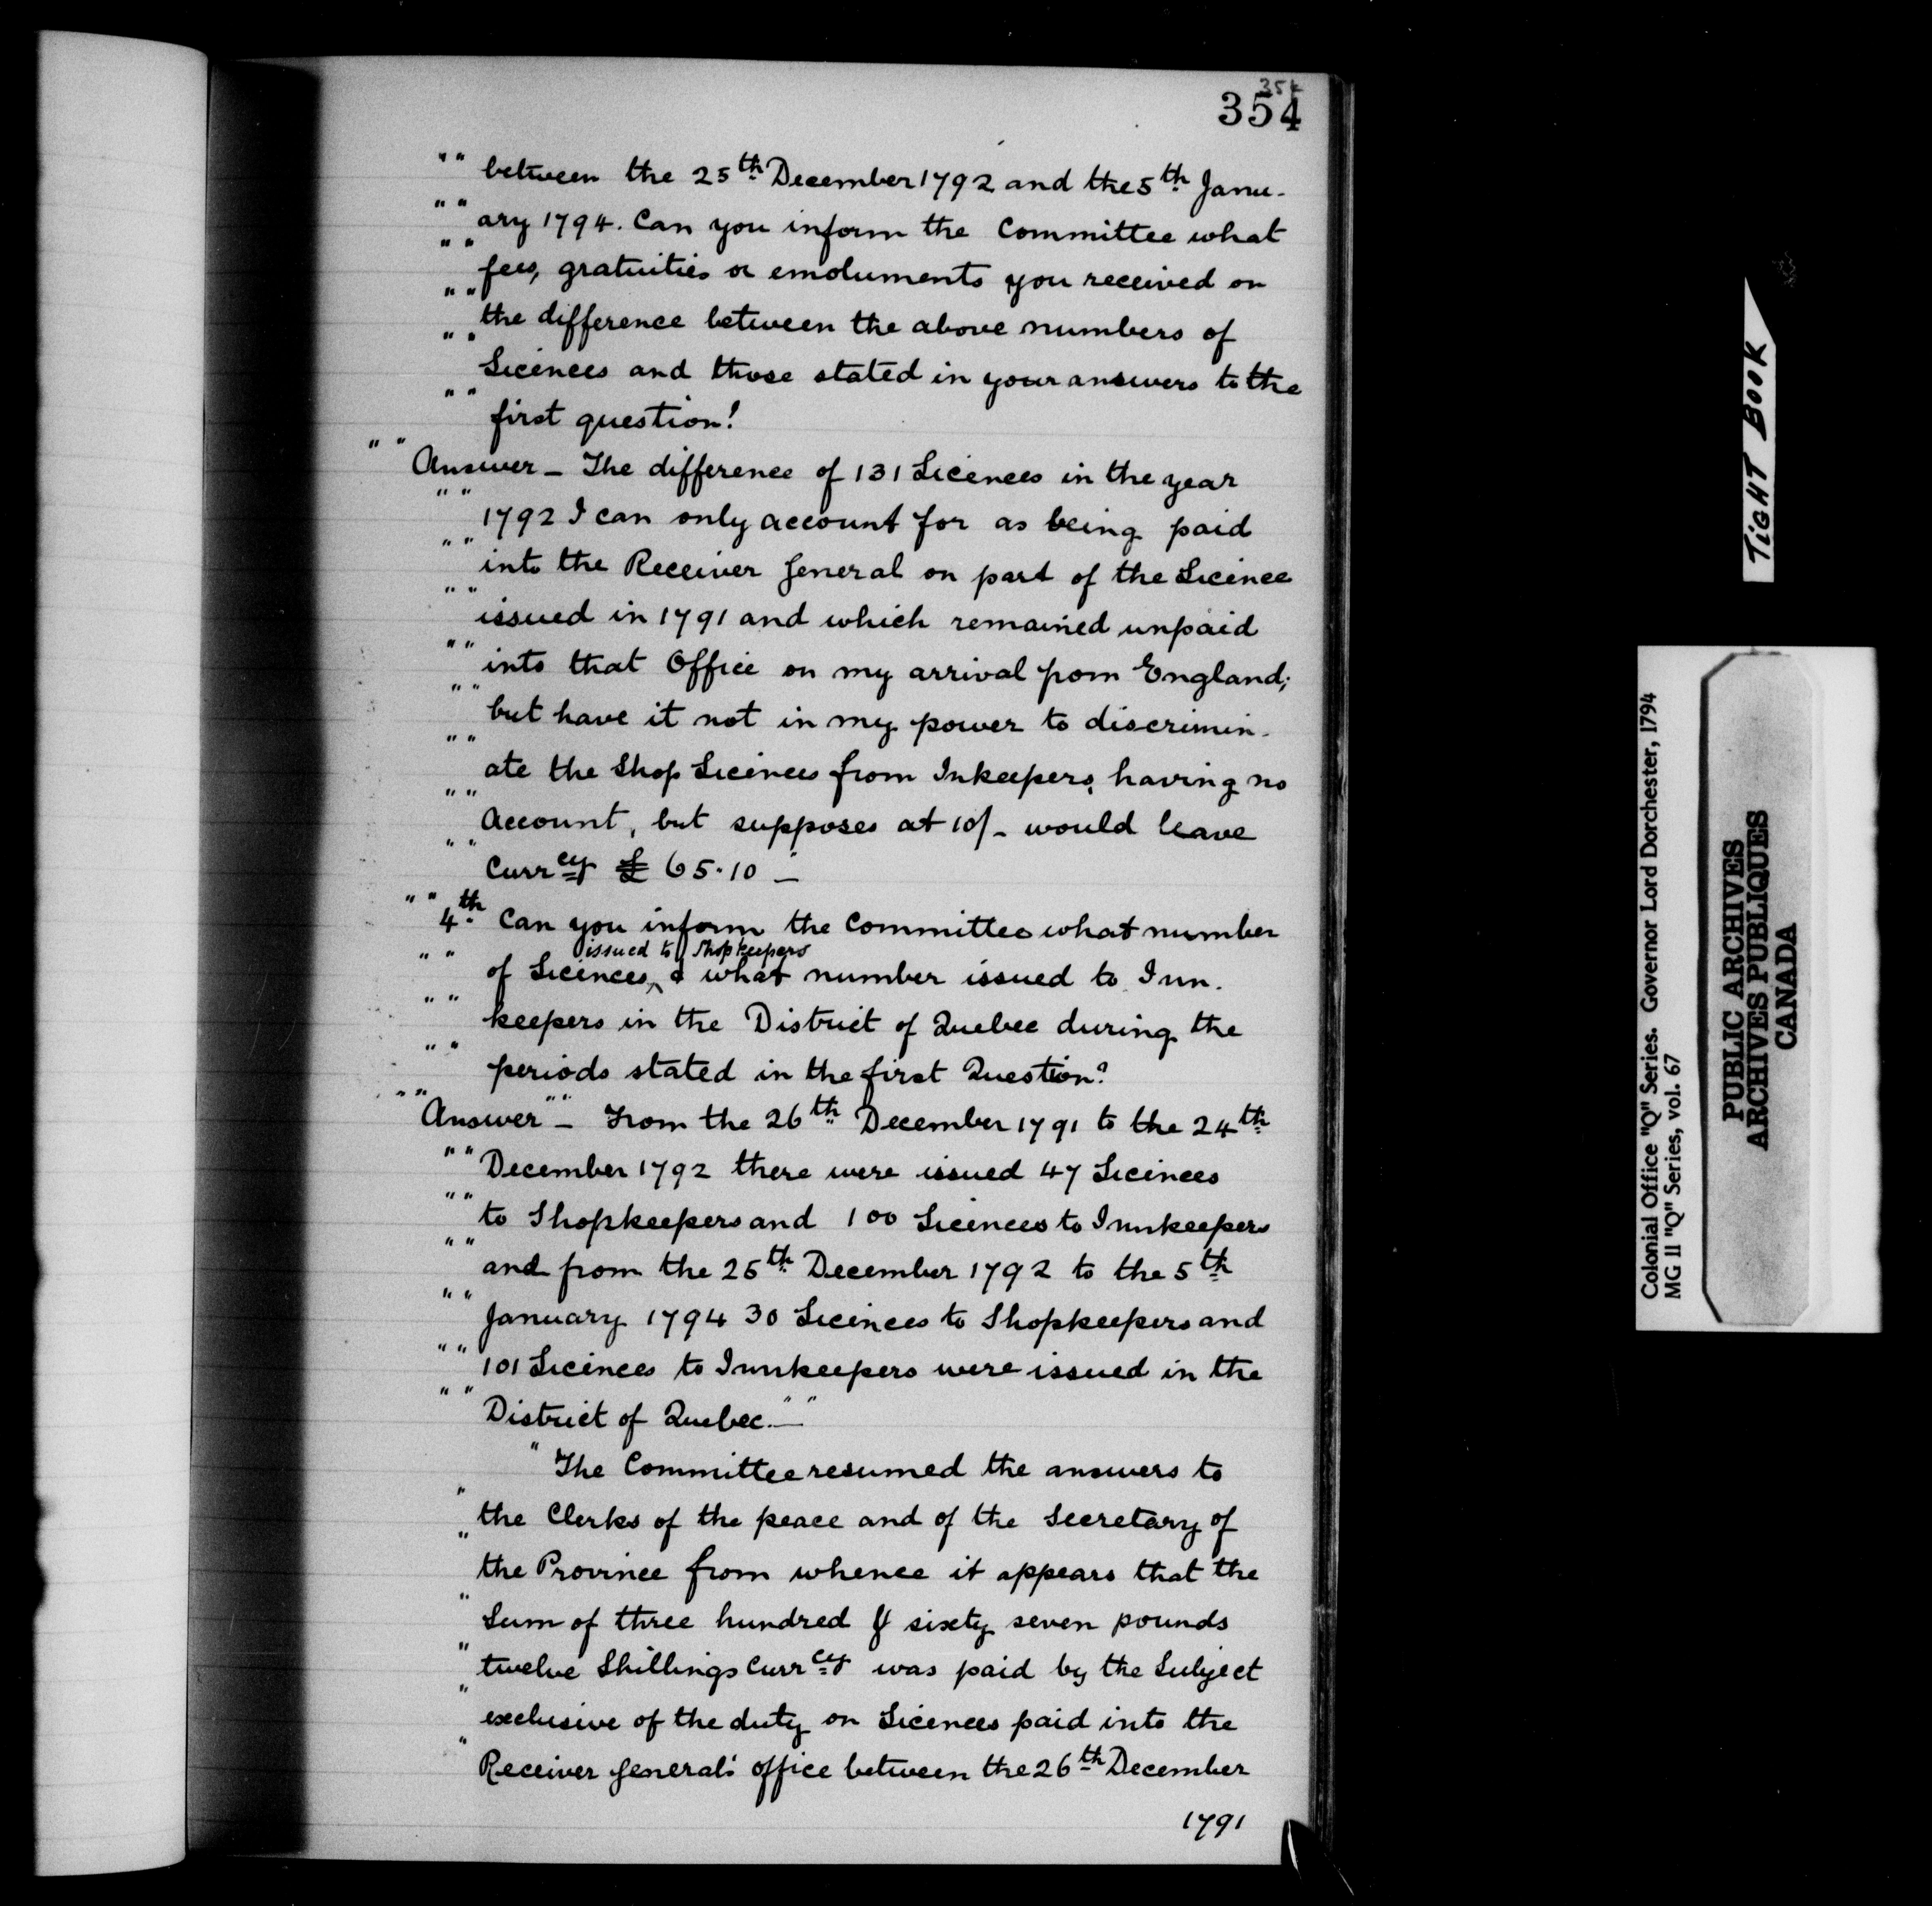 354
354
" " between the 25th December 1792 and the 5th Janu-
" " ary 1794. Can you inform the Committee what
" " fees, gratuities or emoluments you received on
" " the difference between the above numbers of
" " Licences and those stated in your answers to the
" " first question?
" " Answer - The difference of 131 Licences in the year
" " 1792 I can only account for as being paid
" " into the Receiver General on part of the Licence
" " issued in 1791 and which remained unpaid
" " into that Office on my arrival from England;
" " but have it not in my power to discrimin-
" " ate the Shop Licences from Inkeepers, having no
" " Account, but supposes at 10/- would leave
" " Currcy £ 65.10 -
" " 4th Can you inform the Committee what number
issued to Shopkeepers
" " of Licences, & what number issued to Inn-
" " keepers in the District of Quebec during the
" " periods stated in the first Question?
" " Answer " " - From the 26th December 1791 to the 24th
" " December 1792 there were issued 47 Licences
" " to Shopkeepers and 100 Licences to Innkeepers
" " and from the 25th December 1792 to the 5th
" " January 1794 30 Licences to Shopkeepers and
" " 101 Licences to Innkeepers were issued in the
" " District of Quebec. - " "
" The Committee resumed the answers to
" the Clerks of the peace and of the Secretary of
" the Province from whence it appears that the
" Sum of three hundred & sixty seven pounds
" twelve Shillings Currcy was paid by the Subject
" exclusive of the duty on Licences paid into the
" Receiver General's office between the 26th December
1791
TIGHT BOOK
Colonial Office "Q" Series. Governor Lord Dorchester, 1794
MG 11 "Q" Series, vol. 67
PUBLIC ARCHIVES
ARCHIVES PUBLIQUES
CANADA